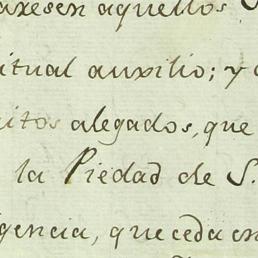 axesen aquellos
itual auxilio; y
itos alegados, que
la Piedad de S.
igencia, que ceda en